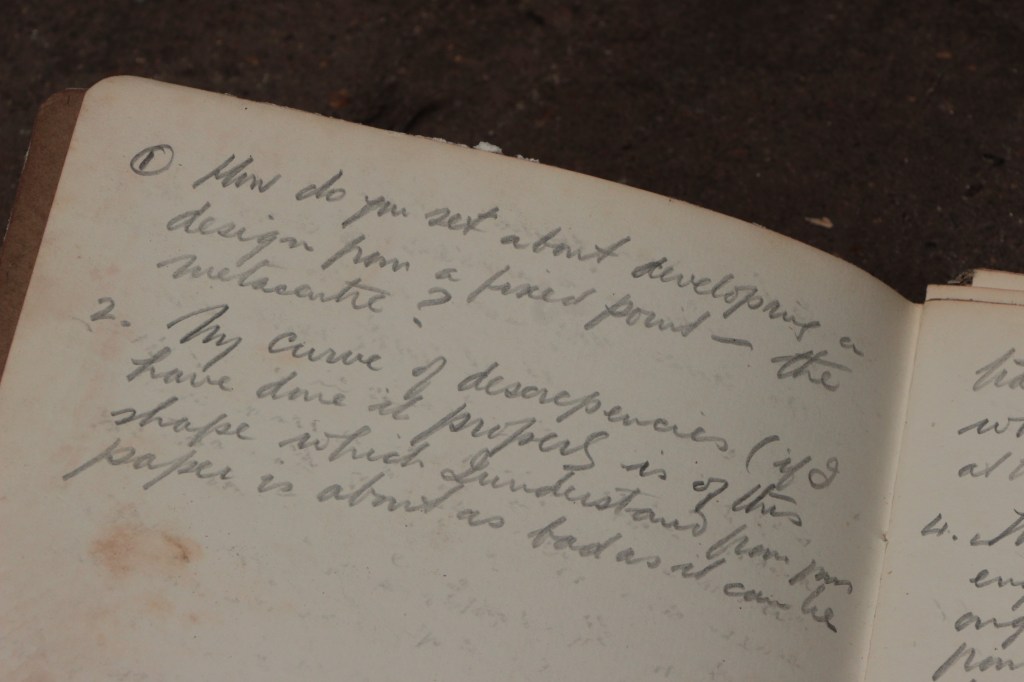 ① How do you set about developing a
design from a fixed point – the
metacentre ?
2. My curve of descrepencies (if I
have done it properly is of this
shape which I understand from your
paper is about as bad as it can be
tra
wh
at
4.
eng
ong
poin